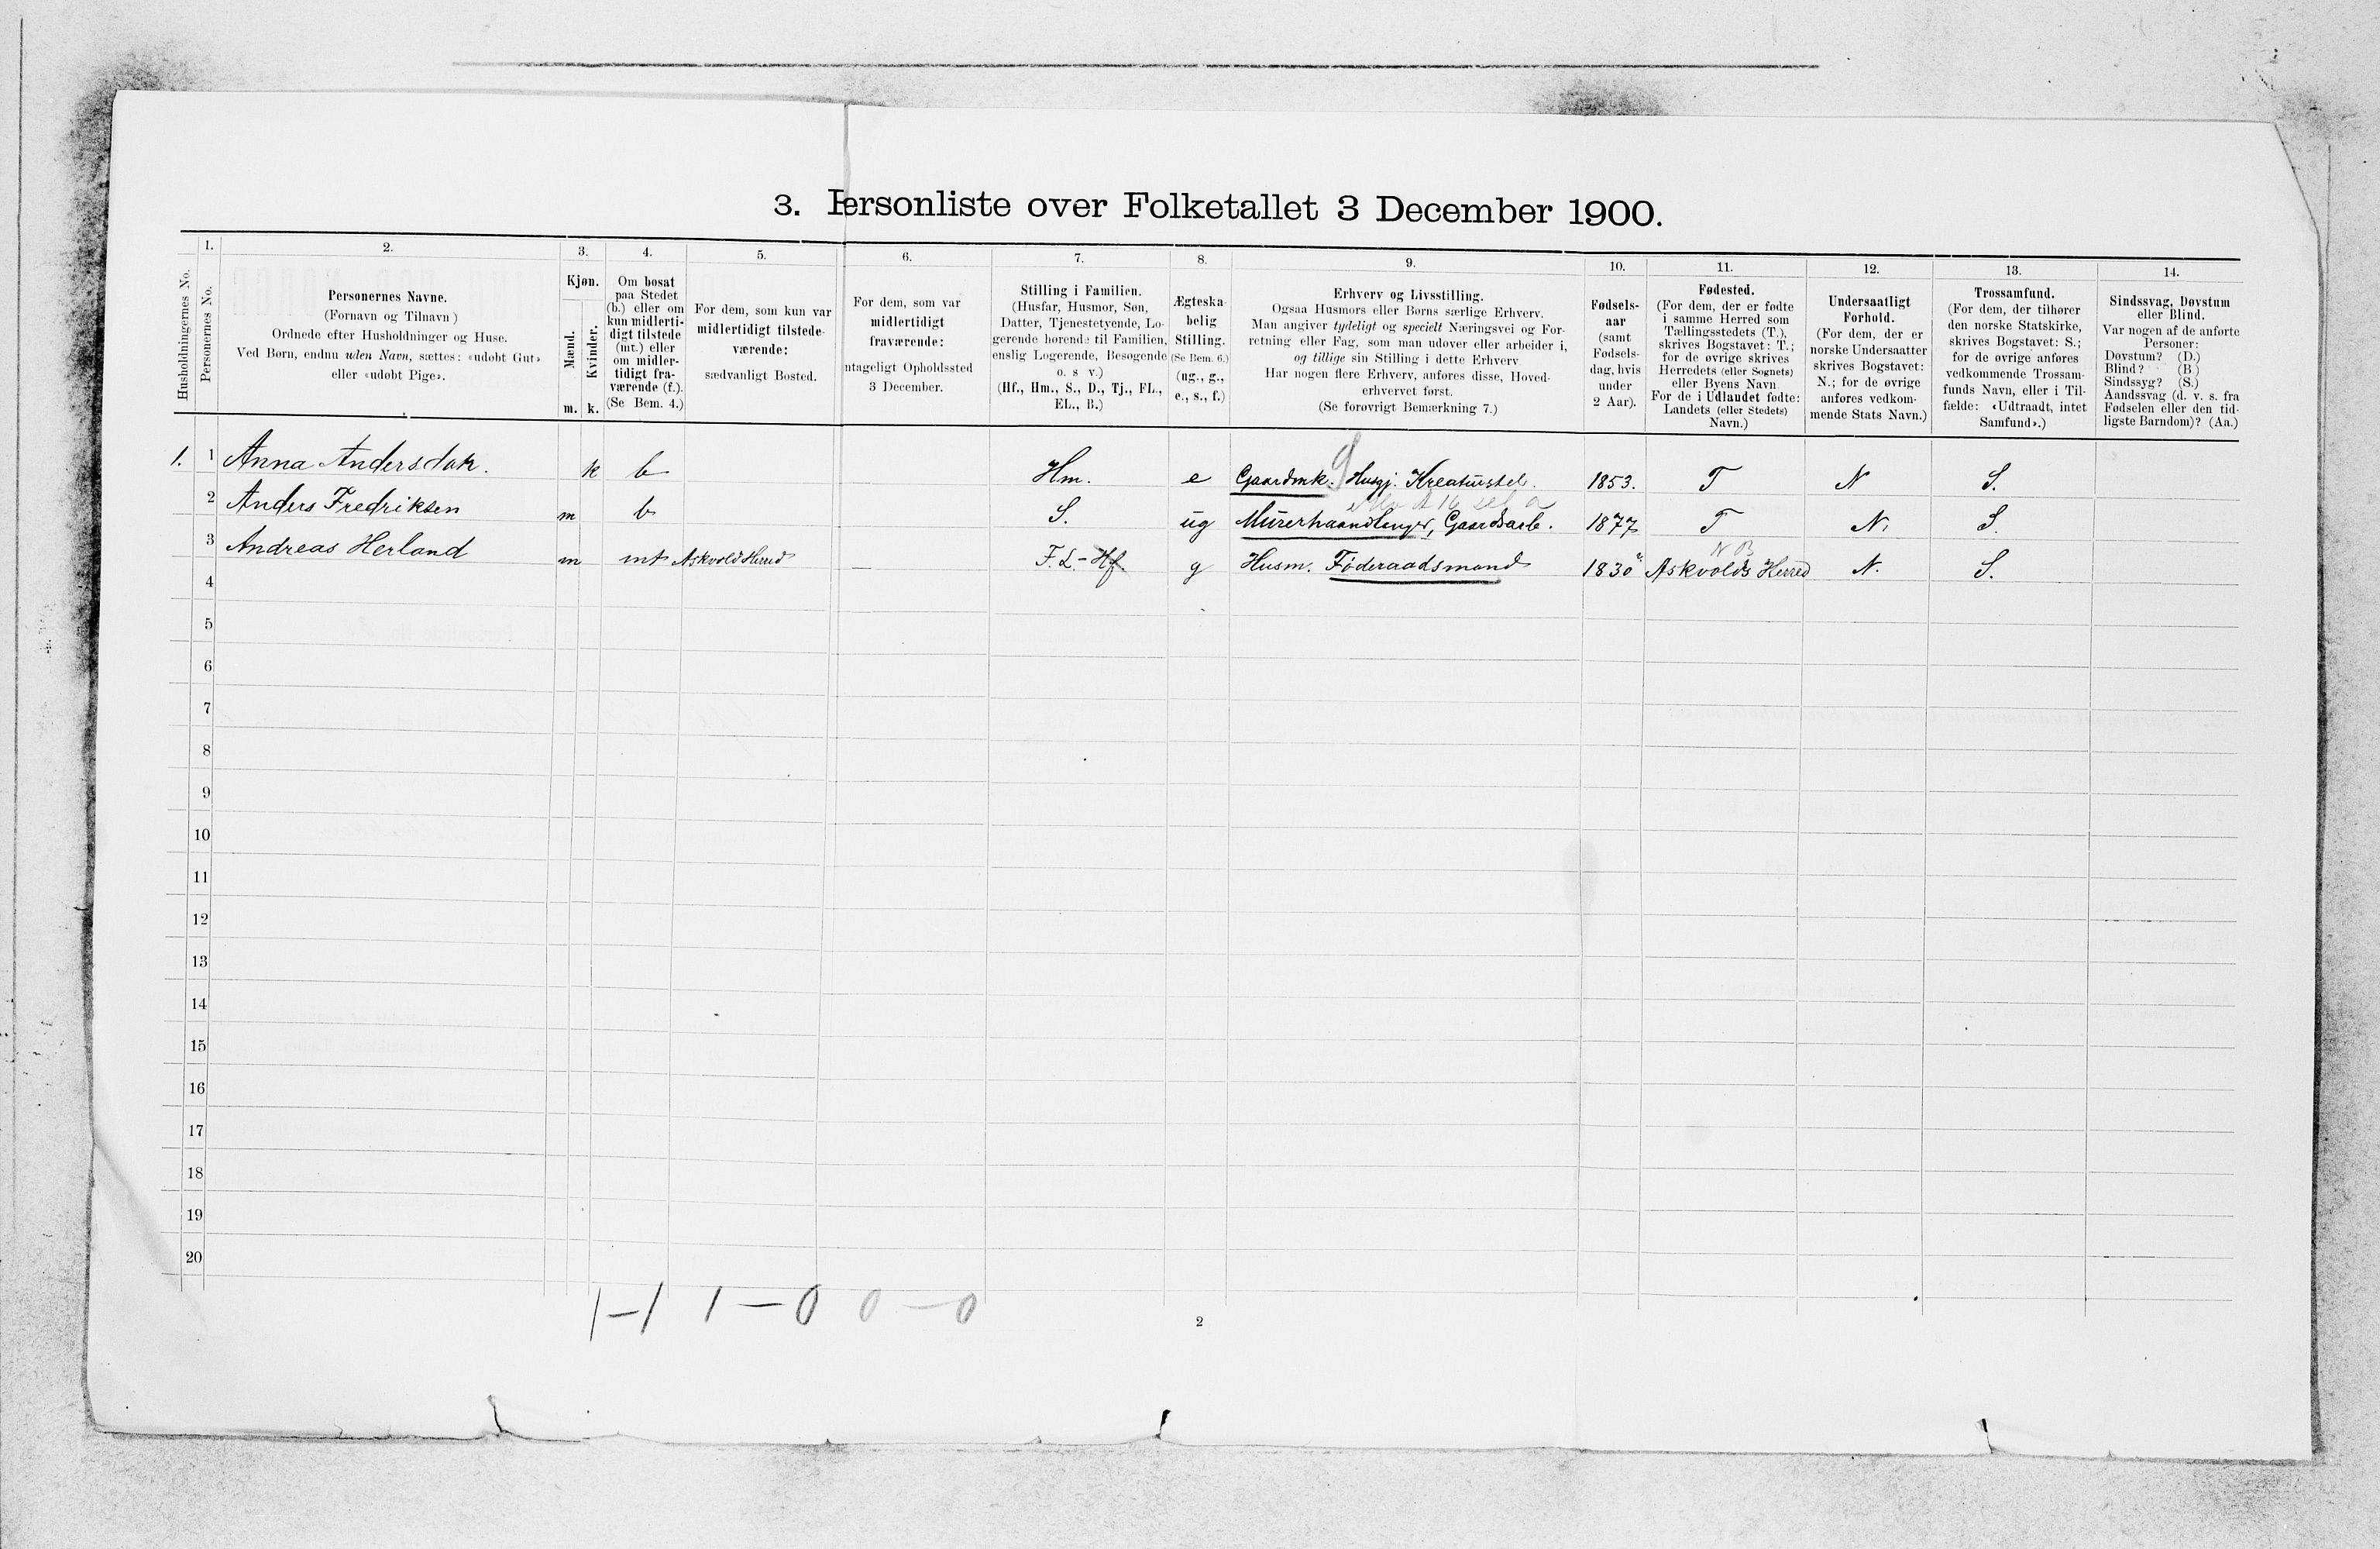 3. Personliste over Folketallet 3 December 1900.
1. 2. 3. 4. 5. 6. 7. 8. 9. 10. 11. 12. 13. 14.
Husholdningernes No.
Personernes No.
Personernes Navne.
(Fornavn og Tilnavn)
Ordnede efter Husholdninger og Huse.
Ved Børn, endnu uden Navn, sættes: «udøbt Gut»
eller «udøbt Pige».
Kjøn.
Mænd.
Kvinder.
m. k.
Om bosat
paa Stedet
(b.) eller om
kun midlerti-
digt tilstede
(mt.) eller
om midler-
tidigt fra-
værende (f.).
(Se Bem. 4.)
For dem, som kun var
midlertidigt tilstede-
værende:
sædvanligt Bosted.
For dem, som var
midlertidigt
fraværende:
ntageligt Opholdssted
3 December.
Stilling i Familien.
(Husfar, Husmor, Søn,
Datter, Tjenestetyende, Lo-
gerende hørende til Familien,
enslig Logerende, Besøgende
o. s v.)
(Hf., Hm., S., D., Tj., FL.,
EL., B.)
Ægteska-
belig
Stilling.
(Se Bem. 6.)
(ug., g.,
e., s., f.)
Erhverv og Livsstilling.
Ogsaa Husmors eller Børns særlige Erhverv.
Man angiver tydeligt og specielt Næringsvei og For-
retning eller Fag, som man udøver eller arbeider i,
og tillige sin Stilling i dette Erhverv
Har nogen flere Erhverv, anføres disse, Hoved-
erhvervet først.
(Se forøvrigt Bemærkning 7.)
Fødsels-
aar
(samt
Fødsels-
dag, hvis
under
2 Aar).
Fødested.
(For dem, der er fødte
i samme Herred som
Tællingsstedets (T.),
skrives Bogstavet: T.;
for de øvrige skrives
Herredets (eller Sognets)
eller Byens Navn
For de i Udlandet fødte:
Landets (eller Stedets)
Navn.)
Undersaatligt
Forhold.
(For dem, der er
norske Undersaatter
skrives Bogstavet:
N.; for de øvrige
anføres vedkom-
mende Stats Navn.)
Trossamfund.
(For dem, der tilhører
den norske Statskirke,
skrives Bogstavet: S.;
for de øvrige anføres
vedkommende Trossam-
funds Navn, eller i Til-
fælde: «Udtraadt, intet
Samfund».)
Sindssvag, Døvstum
eller Blind.
Var nogen af de anførte
Personer:
Døvstum? (D.)
Blind? (B.)
Sindssyg? (S.)
Aandssvag (d. v. s. fra
Fødselen eller den tid-
ligste Barndom)? (Aa.)
1. 1 Anna Andersdatr. k b Hm. e Gaardmk. Husgj. Kreaturstel. 1853. T N S.
2 Anders Fredriksen m b S. ug Murerhaandlanger, Gaardsarb. 1877 T N. S.
N B
3 Andreas Herland m mt Askvold Herred — F.L.-Hf. g Husm. Føderaadsmand 1830 Askvolds Herred N. S.
4
5
6
7
8
9
10
11
12
13
14
15
16
17
18
19
20
1-1 1-0 0-0
2